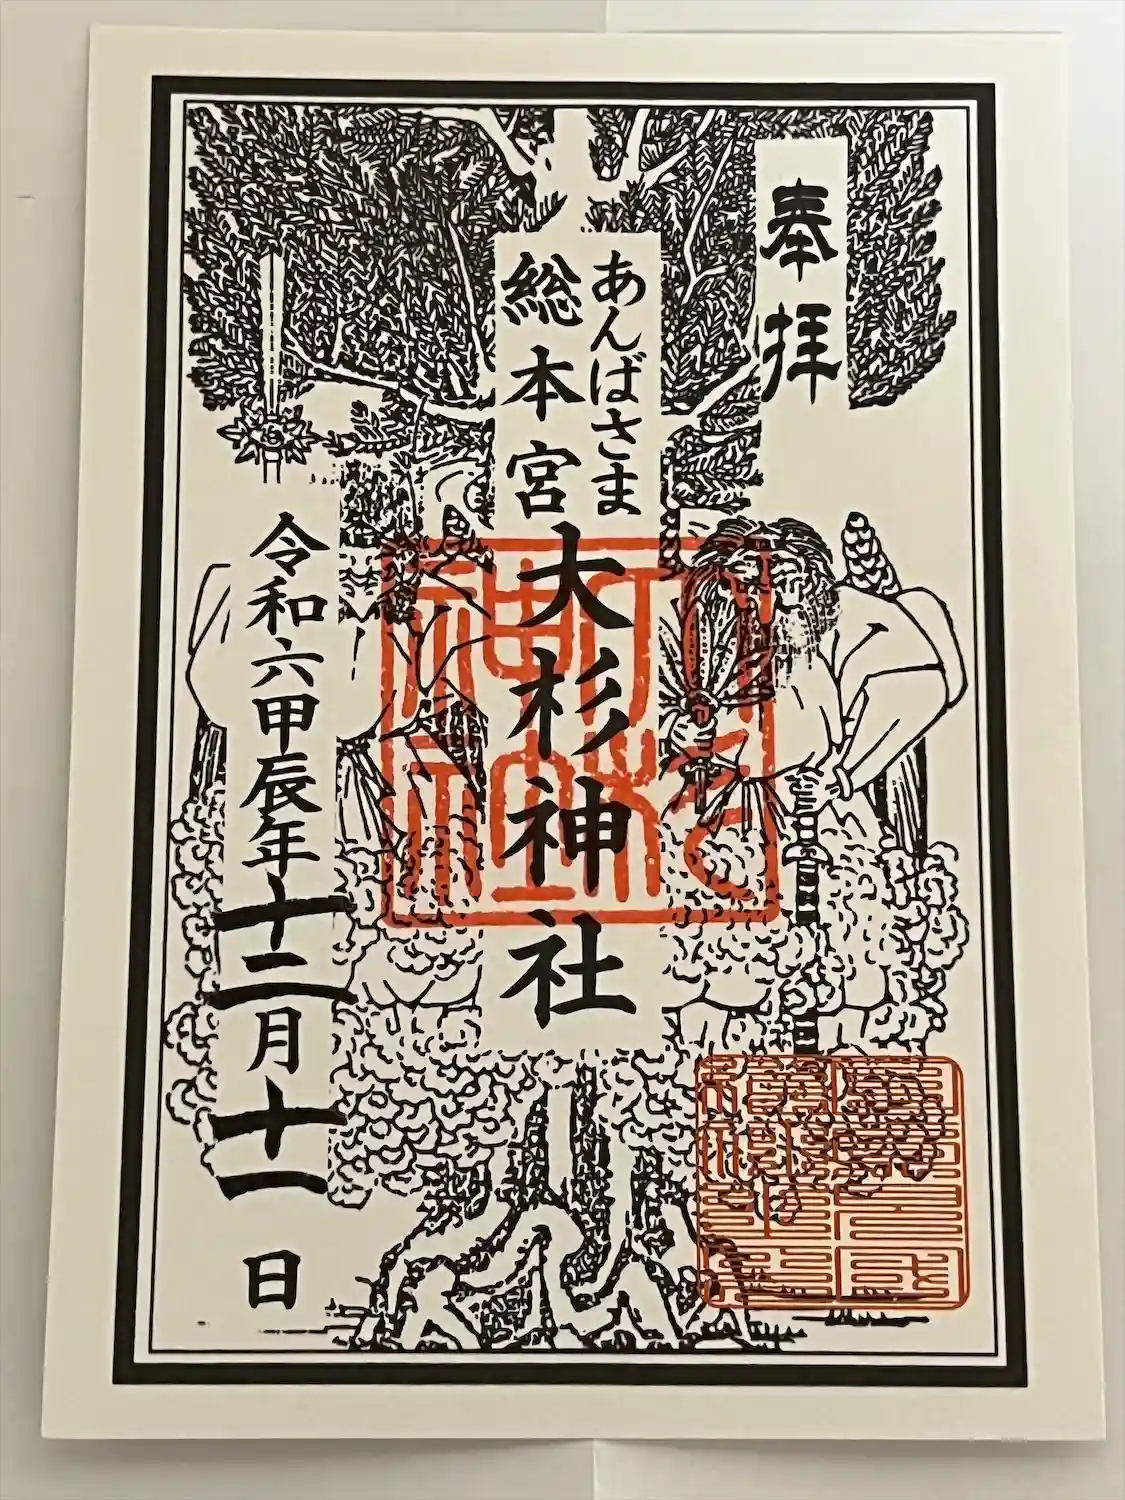 奉拝
あんばさま
総本宮
大杉神社
令和六甲辰年十二月十一日
大杉神社